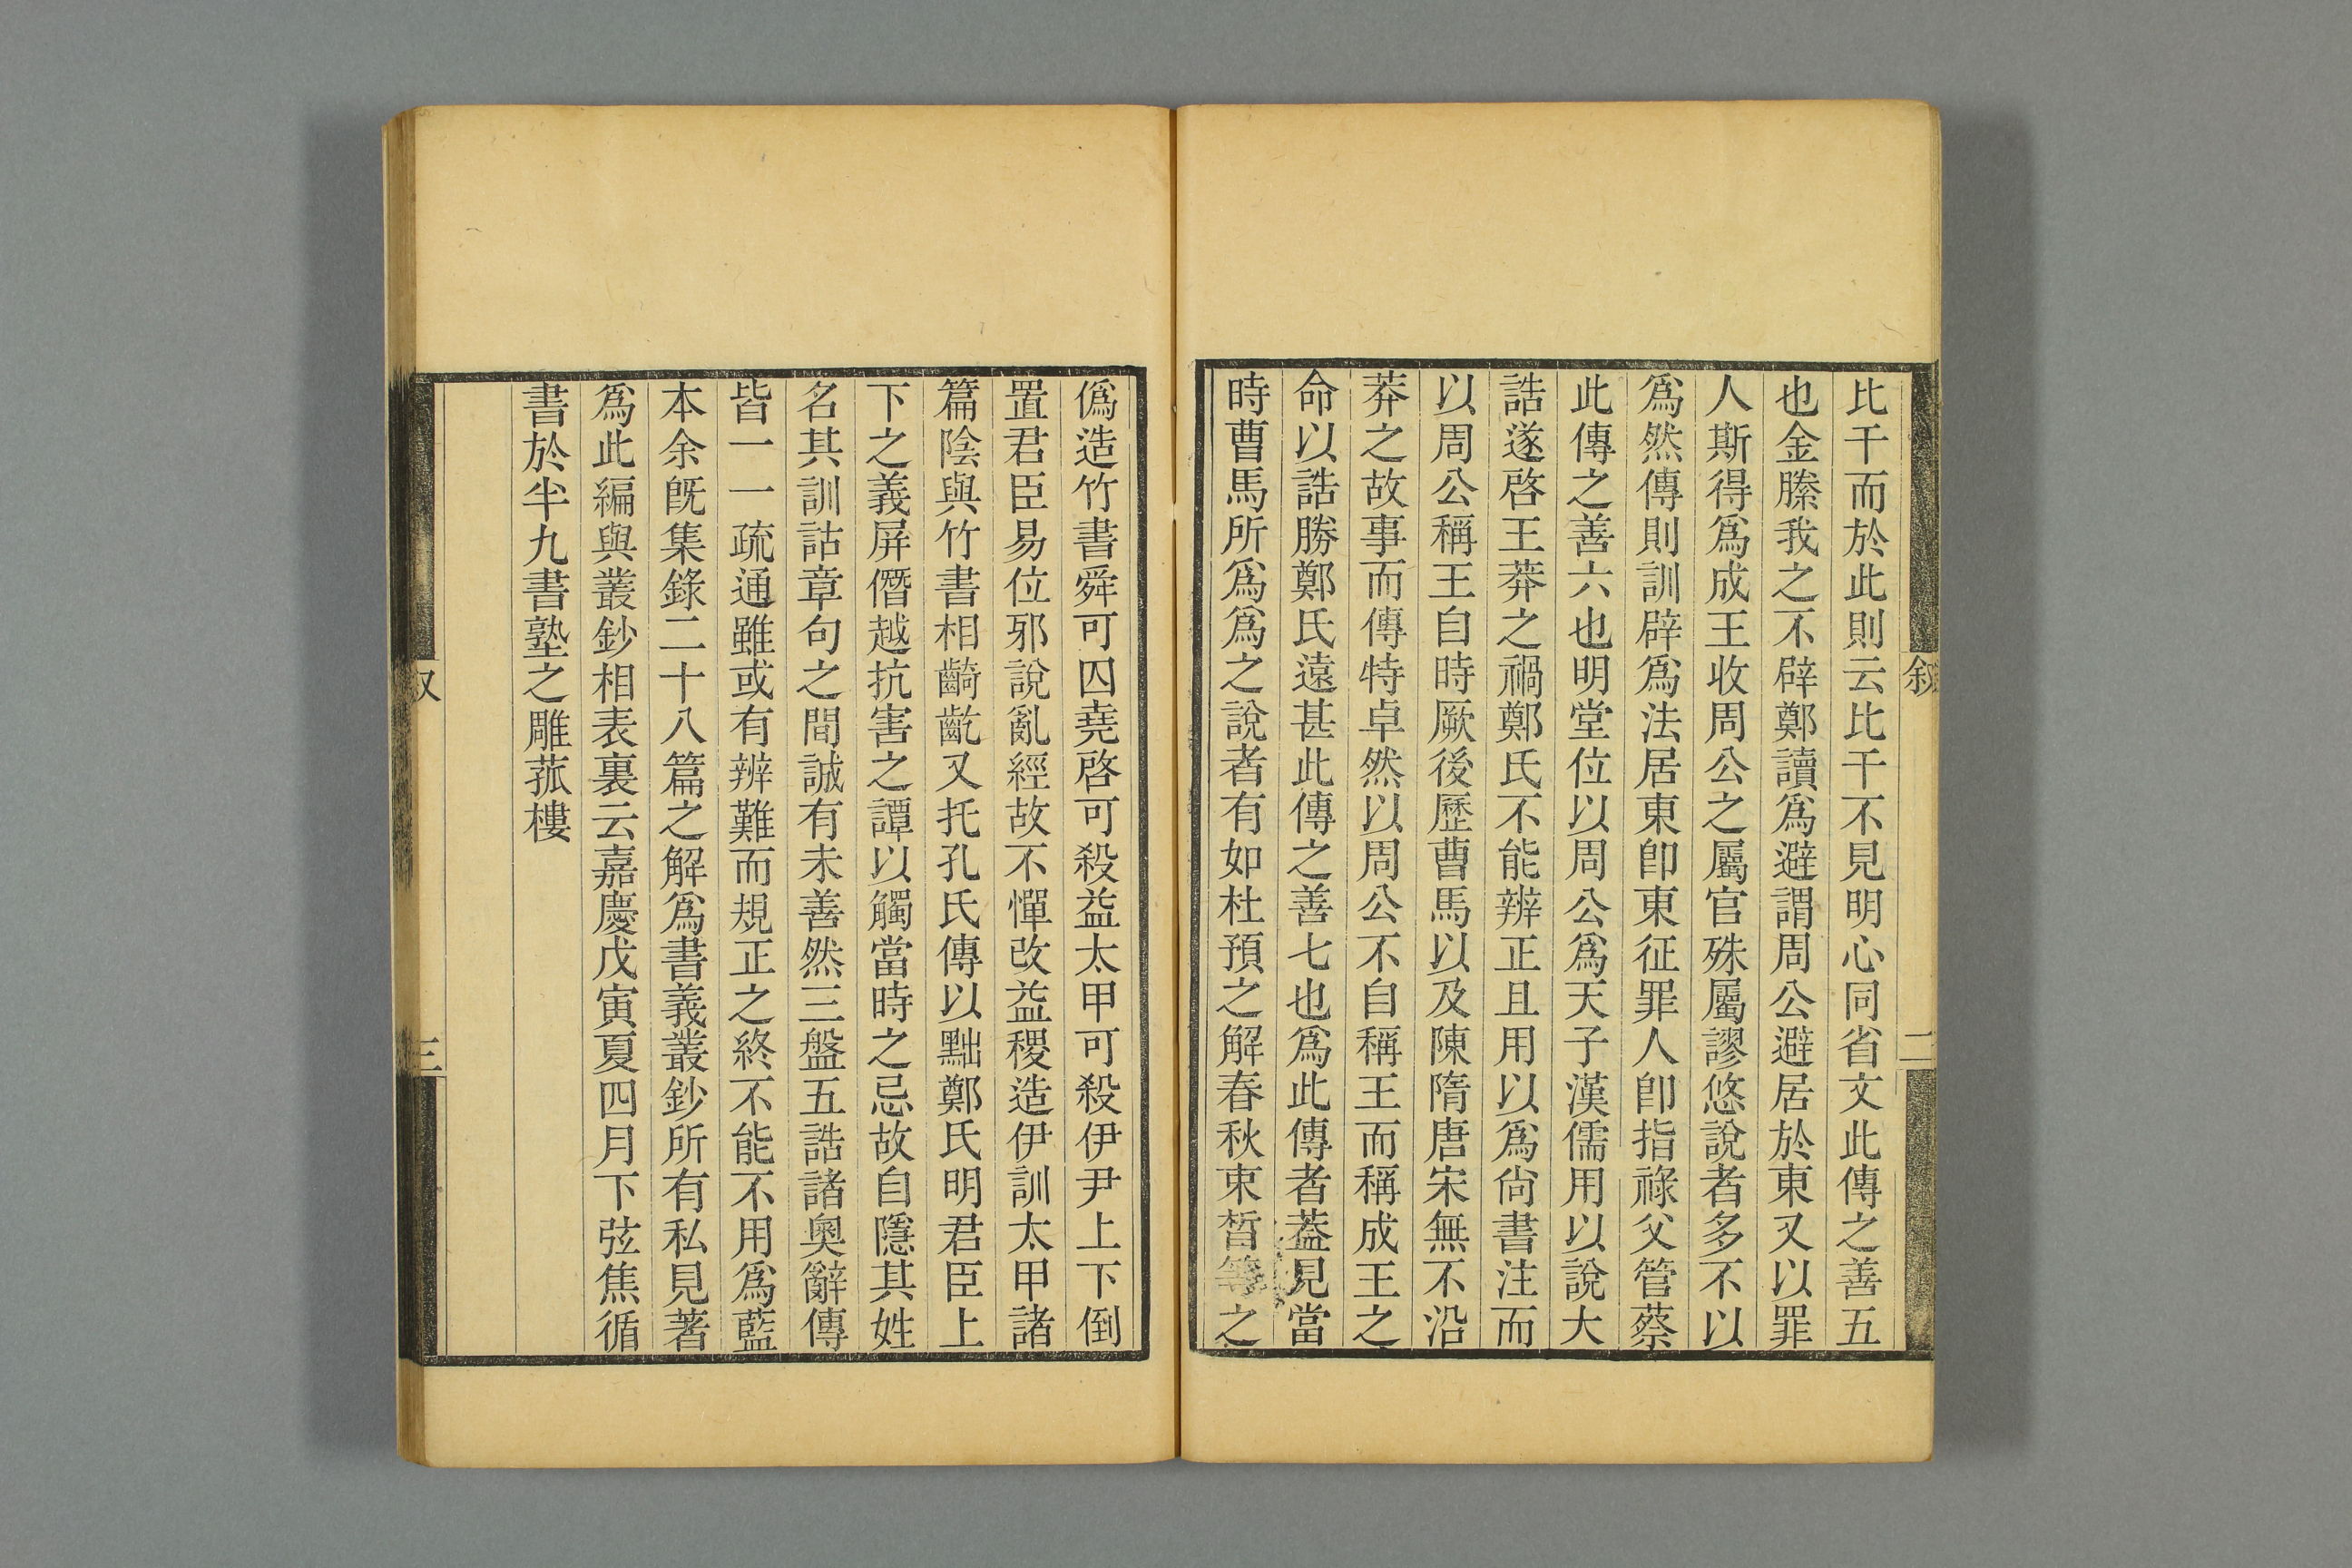 敘
二
比干而於此則云比干不見明心同省文此傳之善五
也金縢我之不辟鄭讀爲避謂周公避居於東又以罪
人斯得爲成王收周公之屬官殊屬謬悠說者多不以
爲然傳則訓辟爲法居東卽東征罪人卽指祿父管蔡
此傳之善六也明堂位以周公爲天子漢儒用以說大
誥遂啓王莽之禍鄭氏不能辨正且用以爲尙書注而
以周公稱王自時厥後歷曹馬以及陳隋唐宋無不沿
莽之故事而傳特卓然以周公不自稱王而稱成王之
命以誥勝鄭氏遠甚此傳之善七也爲此傳者葢見當
時曹馬所爲爲之說者有如杜預之解春秋束晳等之
僞造竹書舜可囚堯啓可殺益太甲可殺伊尹上下倒
置君臣易位邪說亂經故不憚改益稷造伊訓太甲諸
篇陰與竹書相齮齕又托孔氏傳以黜鄭氏明君臣上
下之義屏僭越抗害之譚以觸當時之忌故自隱其姓
名其訓詁章句之間誠有未善然三盤五誥諸奧辭傳
皆一一疏通雖或有辨難而規正之終不能不用爲藍
本余旣集錄二十八篇之解爲書義叢鈔所有私見著
爲此編與叢鈔相表裏云嘉慶戊寅夏四月下弦焦循
書於半九書塾之雕菰樓
三